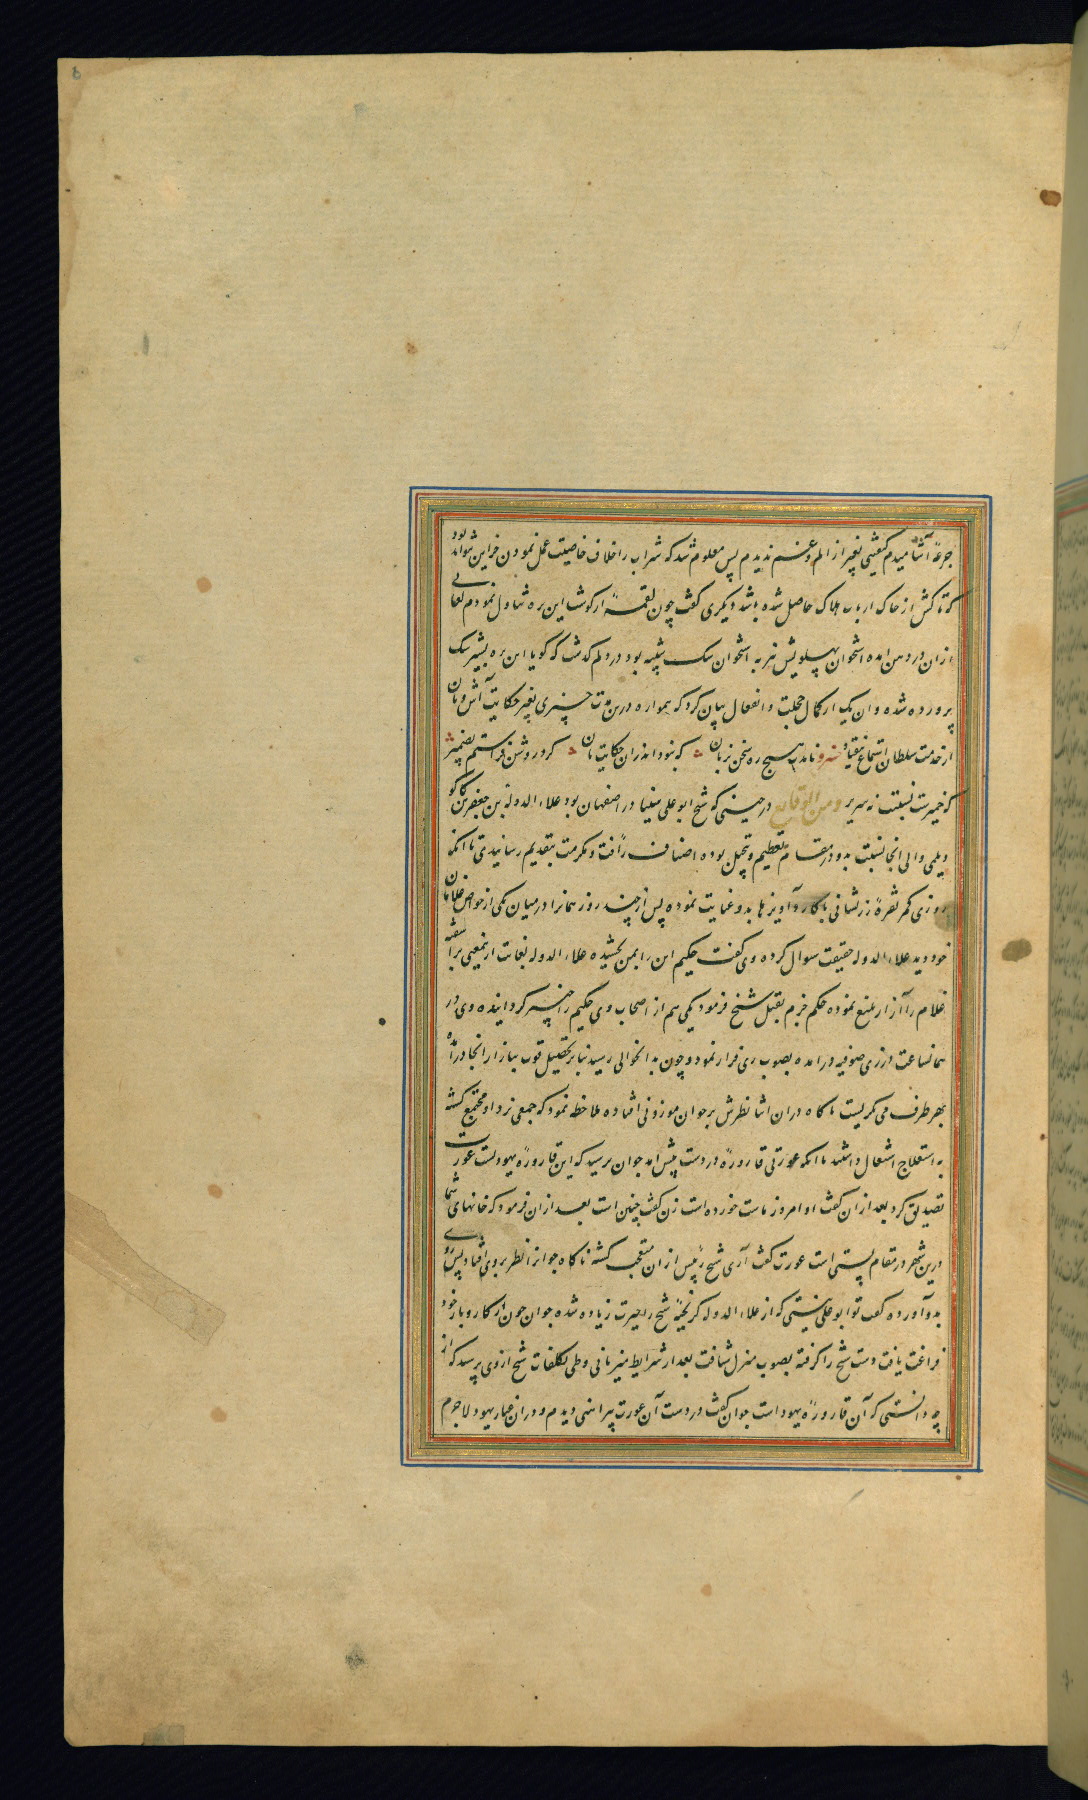 جرعهٔ آشامیدم کیفیتی بغیر از الم و غم ندیدم پس معلوم شد که شراب را خلاف خاصیت عمل نمودن فراین تواند بود
که تاکش از خاک ارباب هلاک حاصل شده باشد دیگری گفت چون لقمهٔ از گوشت این بره تناول نمودم لعابی
ازان در دهن امده استخوان پهلویش نیز به استخوان سک شبیه بود در دلم گذشت که گویا این بره بشیر سک
پرورده شده وان یک از کمال خجلت و انفعال بیان کرد که همواره درین وقت چیزی بغیر حکایت آش و نان
از خدمت سلطان استماع نیفتاد نامدت هیچ ره سخن بزبان که نبود اندران حکایت نان کرد روشن فراستم بضمیر
که خمیرت نسبتت نه سریر ومن الوقایع در حینی که شیخ ابو علی سینا در اصفهان بود علاء الدوله بن جعفر بن کاکو
دیلمی والی انجا نسبت بدو در مقام تعظیم و تبجیل بوده اصناف رأفت و مکرمت بتقدیم رسانیدی تا انکه
روزی کمر نقرهٔ زرنشانی با کارد آویزها بدو عنایت نموده پس از چند روز همانرا در میان یکی از خواص غلامان
خود دید علاء الدوله حقیقت سوال کرده وی گفت حکیم این را بمن بخشیده علاء الدوله بغایت ازینمعنی برآشفته
غلام را آزار بلیغ نموده حکم جزم بقتل شیخ فرمود یکی هم از اصحاب وی حکیم را خبیر گردانیده وی در
همانساعت در زی صوفیه درامده بصوب ری فرار نمود و چون بدانحوالی رسید بنابر تحصیل قوت ببازار انجا درآمده
بهر طرف می نگریست ناگاه دران اثنا نظرش بر جوان موزونی افتاده ملاحظه نمود که جمعی نزد او مجتمع گشته
به استعلاج اشتغال داشتند تا انکه عورتی قارورهٔ در دست پیش آمد جوان پرسید که این قارورهٔ یهودیست عورت
تصدیق کرد بعد ازان گفت او امروز ماست خورده است زن گفت چنین است بعد ازان فرمود که خانهای شما
درین شهر در مقام پستی است عورت گفت آری شیخ رئیس ازان متعجب گشته ناگاه جوانرا نظر بروی افتاد پس روی
بدو آورده گفت تو ابو علی سینستی که از علاء الدوله گریختهٔ شیخ را حیرت زیاده شده جوان چون از کار و بار خود
فراغت یافت دست شیخ را گرفته بصوب منزل شتافت بعد از شرایط میزبانی و طی تکلفات شیخ ازوی پرسید که از
چه دانستی که آن قارورهٔ یهود است جوان گفت در دست آن عورت پیراهنی دیدم و دران غیار یهود لاجرم